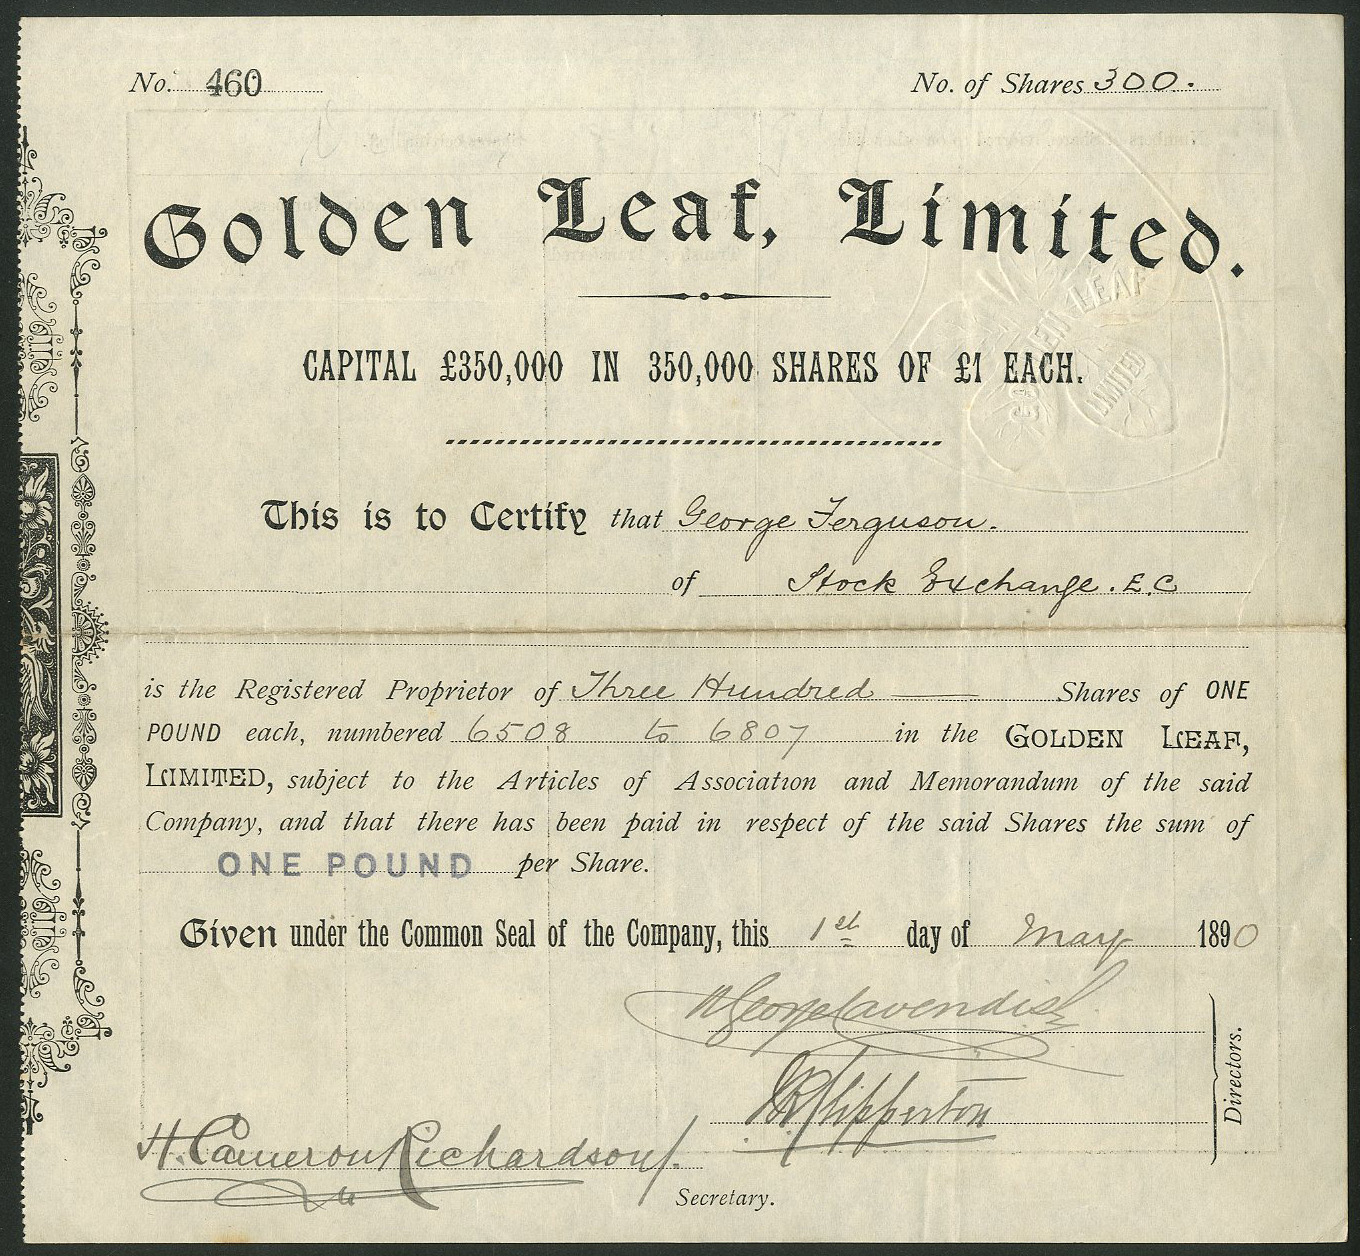 No. 460 No. of Shares 300.
Golden Leaf, Limited.
GOLDEN LEAF
LIMITED
CAPITAL £350,000 IN 350,000 SHARES OF £1 EACH.
This is to Certify that George Ferguson.
of Stock Exchange. E.C
is the Registered Proprietor of Three Hundred Shares of ONE
POUND each, numbered 6508 to 6807 in the GOLDEN LEAF,
LIMITED, subject to the Articles of Association and Memorandum of the said
Company, and that there has been paid in respect of the said Shares the sum of
ONE POUND per Share.
Given under the Common Seal of the Company, this 1st day of May 1890
George Cavendish
Directors.
H. Cameron Richardson
Secretary.